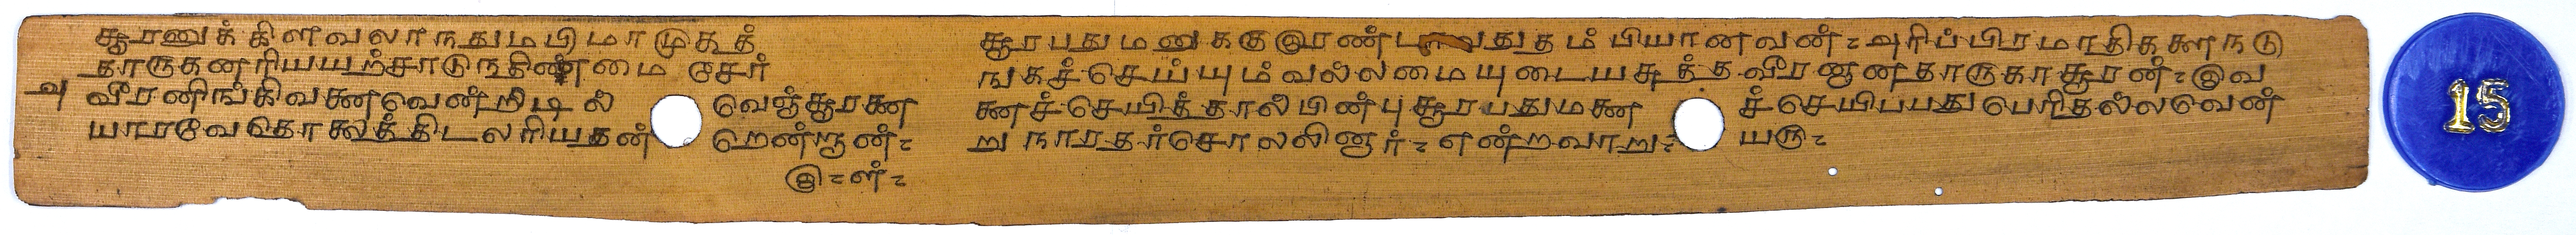 சூரனுக்கிளவலாநதுமபிமாமுகத்
தாருகனரியயற்சாடுநதிண்மை சேர்
வீரனிங்கிவனைவென்றிடில் வெஞ்சூரனை
யாரவேகொலைத்திடலரியதன் றென்றான்-
இ-ள்-
சூரபதுமனுககுஇரண்டாவதுதம் பியானவன்- அரிப்பிரமாதிகளைநடு
ஙகச்செய்யும்வல்லமையுடையசுத்தவீரனானதாருகாசூரன்- இவ
னைச்செயித்தால்பின்புசூரபதுமனை ச்செயிப்பதுபெரிதல்லவென்
று நாரதர்சொலலினார்- என்றவாறு- யரு-